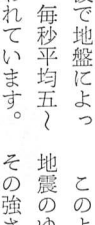 で地盤によっ
毎秒平均五〜
われています。
このよ
地震のゆ
その強さ